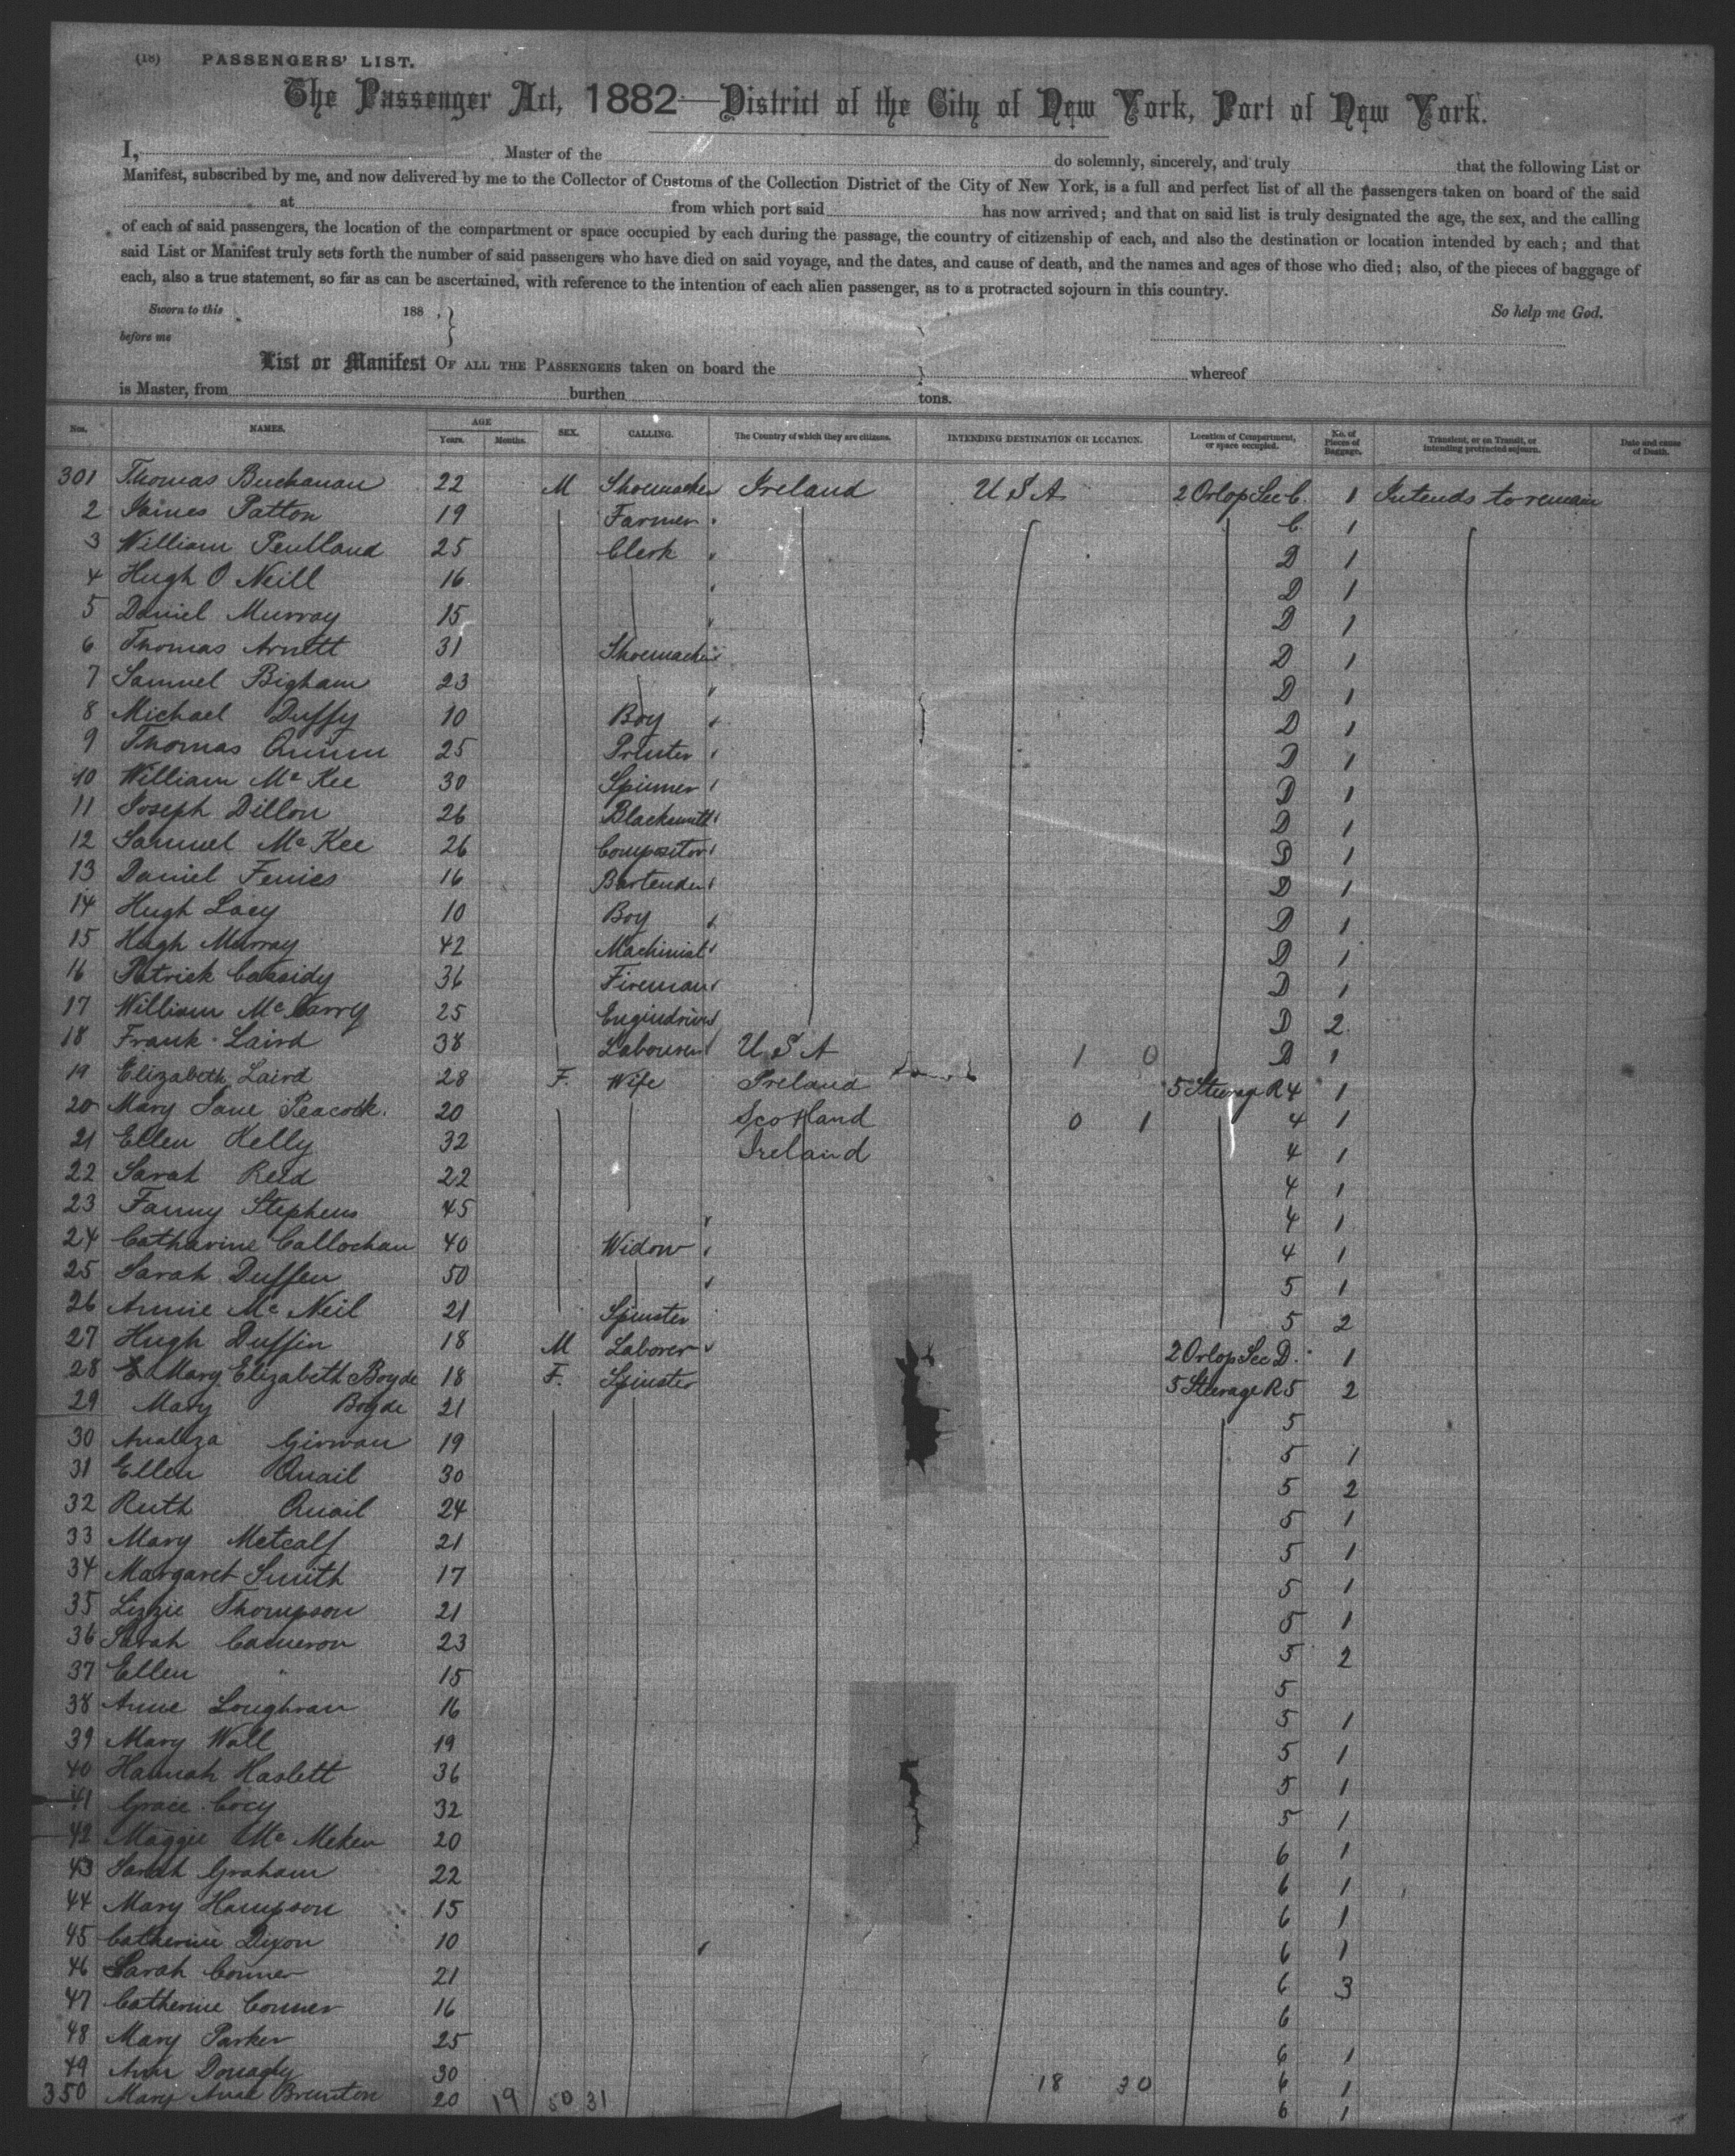 (18) PASSENGERS' LIST.
The Passenger Act, 1882—District of the City of New York, Port of New York.
I, Master of the do solemnly, sincerely, and truly that the following List or
Manifest, subscribed by me, and now delivered by me to the Collector of Customs of the Collection District of the City of New York, is a full and perfect list of all the passengers taken on board of the said
at from which port said has now arrived; and that on said list is truly designated the age, the sex, and the calling
of each of said passengers, the location of the compartment or space occupied by each during the passage, the country of citizenship of each, and also the destination or location intended by each; and that
said List or Manifest truly sets forth the number of said passengers who have died on said voyage, and the dates, and cause of death, and the names and ages of those who died; also, of the pieces of baggage of
each, also a true statement, so far as can be ascertained, with reference to the intention of each alien passenger, as to a protracted sojourn in this country.
Sworn to this 188 , } So help me God.
before me
List or Manifest OF ALL THE PASSENGERS taken on board the whereof
is Master, from burthen tons.
Nos. NAMES. AGE Years. Months. SEX. CALLING. The Country of which they are citizens. INTENDING DESTINATION OR LOCATION. Location of Compartment, or space occupied. No. of Pieces of Baggage. Transient, or on Transit, or intending protracted sojourn. Date and cause of Death.
301 Thomas Buchanan 22 M Shoemaker Ireland U S A 2 Orlop Sec C. 1 Intends to remain
2 James Patton 19 Farmer C 1
3 William Pentland 25 Clerk D 1
4 Hugh O Neill 16 D 1
5 Daniel Murray 15 D 1
6 Thomas Arnett 31 Shoemaker D 1
7 Samuel Bigham 23 D 1
8 Michael Duffy 10 Boy D 1
9 Thomas Quinn 25 Printer D 1
10 William Mc Kee 30 Spinner D 1
11 Joseph Dillon 26 Blacksmith D 1
12 Samuel Mc Kee 26 Compositor D 1
13 Daniel 16 Bartender D 1
14 Hugh Lacy 10 Boy D 1
15 Hugh Murray 42 Machinist D 1
16 Patrick Cassidy 36 Fireman D 1
17 William Mc Garry 25 Enginedriver D 2
18 Frank Laird 38 Labourer U S A 1 0 D 1
19 Elizabeth Laird 28 F. Wife Ireland 5 Steerage R 4 1
20 Mary Jane Peacock. 20 Scotland 0 1 4 1
21 Ellen Kelly 32 Ireland 4 1
22 Sarah Reid 22 4 1
23 Fanny Stephens 45 4 1
24 Catharine Callochan 40 Widow 4 1
25 Sarah Duffen 50 5 1
26 Annie Mc Neil 21 Spinster 5 2
27 Hugh Duffin 18 M Laborer 2 Orlop Sec D. 1
28 Mary Elizabeth Boyde 18 F. Spinster 5 Steerage R 5 2
29 Mary Boyde 21 5
30 Analiza Girvan 19 5 1
31 Ellen Quail 30 5 2
32 Ruth Quail 24 5 1
33 Mary Metcalf 21 5 1
34 Margaret Smith 17 5 1
35 Lizzie Thompson 21 5 1
36 Sarah Cameron 23 5 2
37 Ellen " 15 5
38 Anne Loughran 16 5 1
39 Mary Wall 19 5 1
40 Hannah Haslett 36 5 1
41 Grace 32 5 1
42 Maggie Mc Meken 20 6 1
43 Sarah Graham 22 6 1
44 Mary Hampson 15 6 1
45 Catherine Dixon 10 6 1
46 Sarah Conner 21 6 3
47 Catherine Conner 16 6
48 Mary Parker 25 6 1
49 Ann Donaghy 30 18 30 6 1
350 Mary Anne Brunton 20 19 50 31 6 1